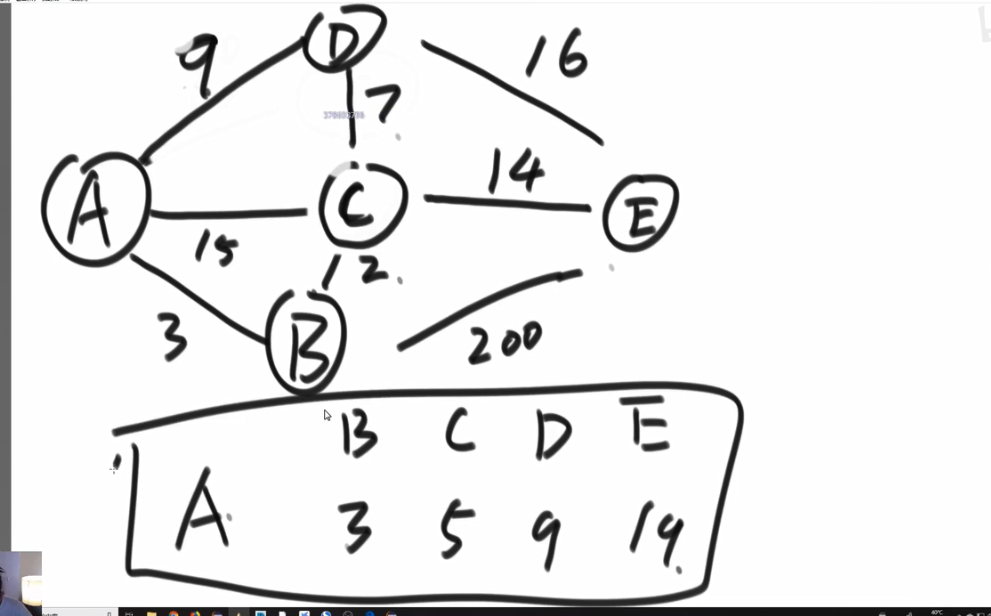 D
9
16
7
14
A
C
E
15
2
3
B
200
B C D E
A 3 5 9 19